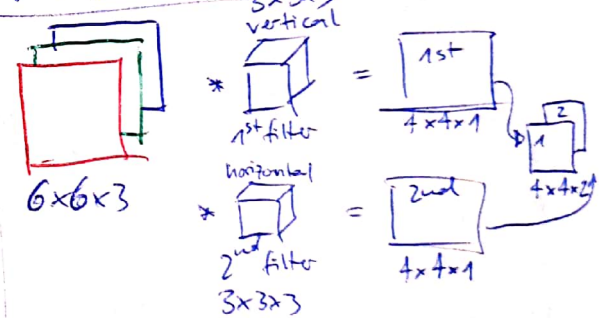 vertical
* =
1st
1st filter
4×4×1
1
2
4×4×2
6×6×3
horizontal
* =
2nd
2nd filter
4×4×1
3×3×3